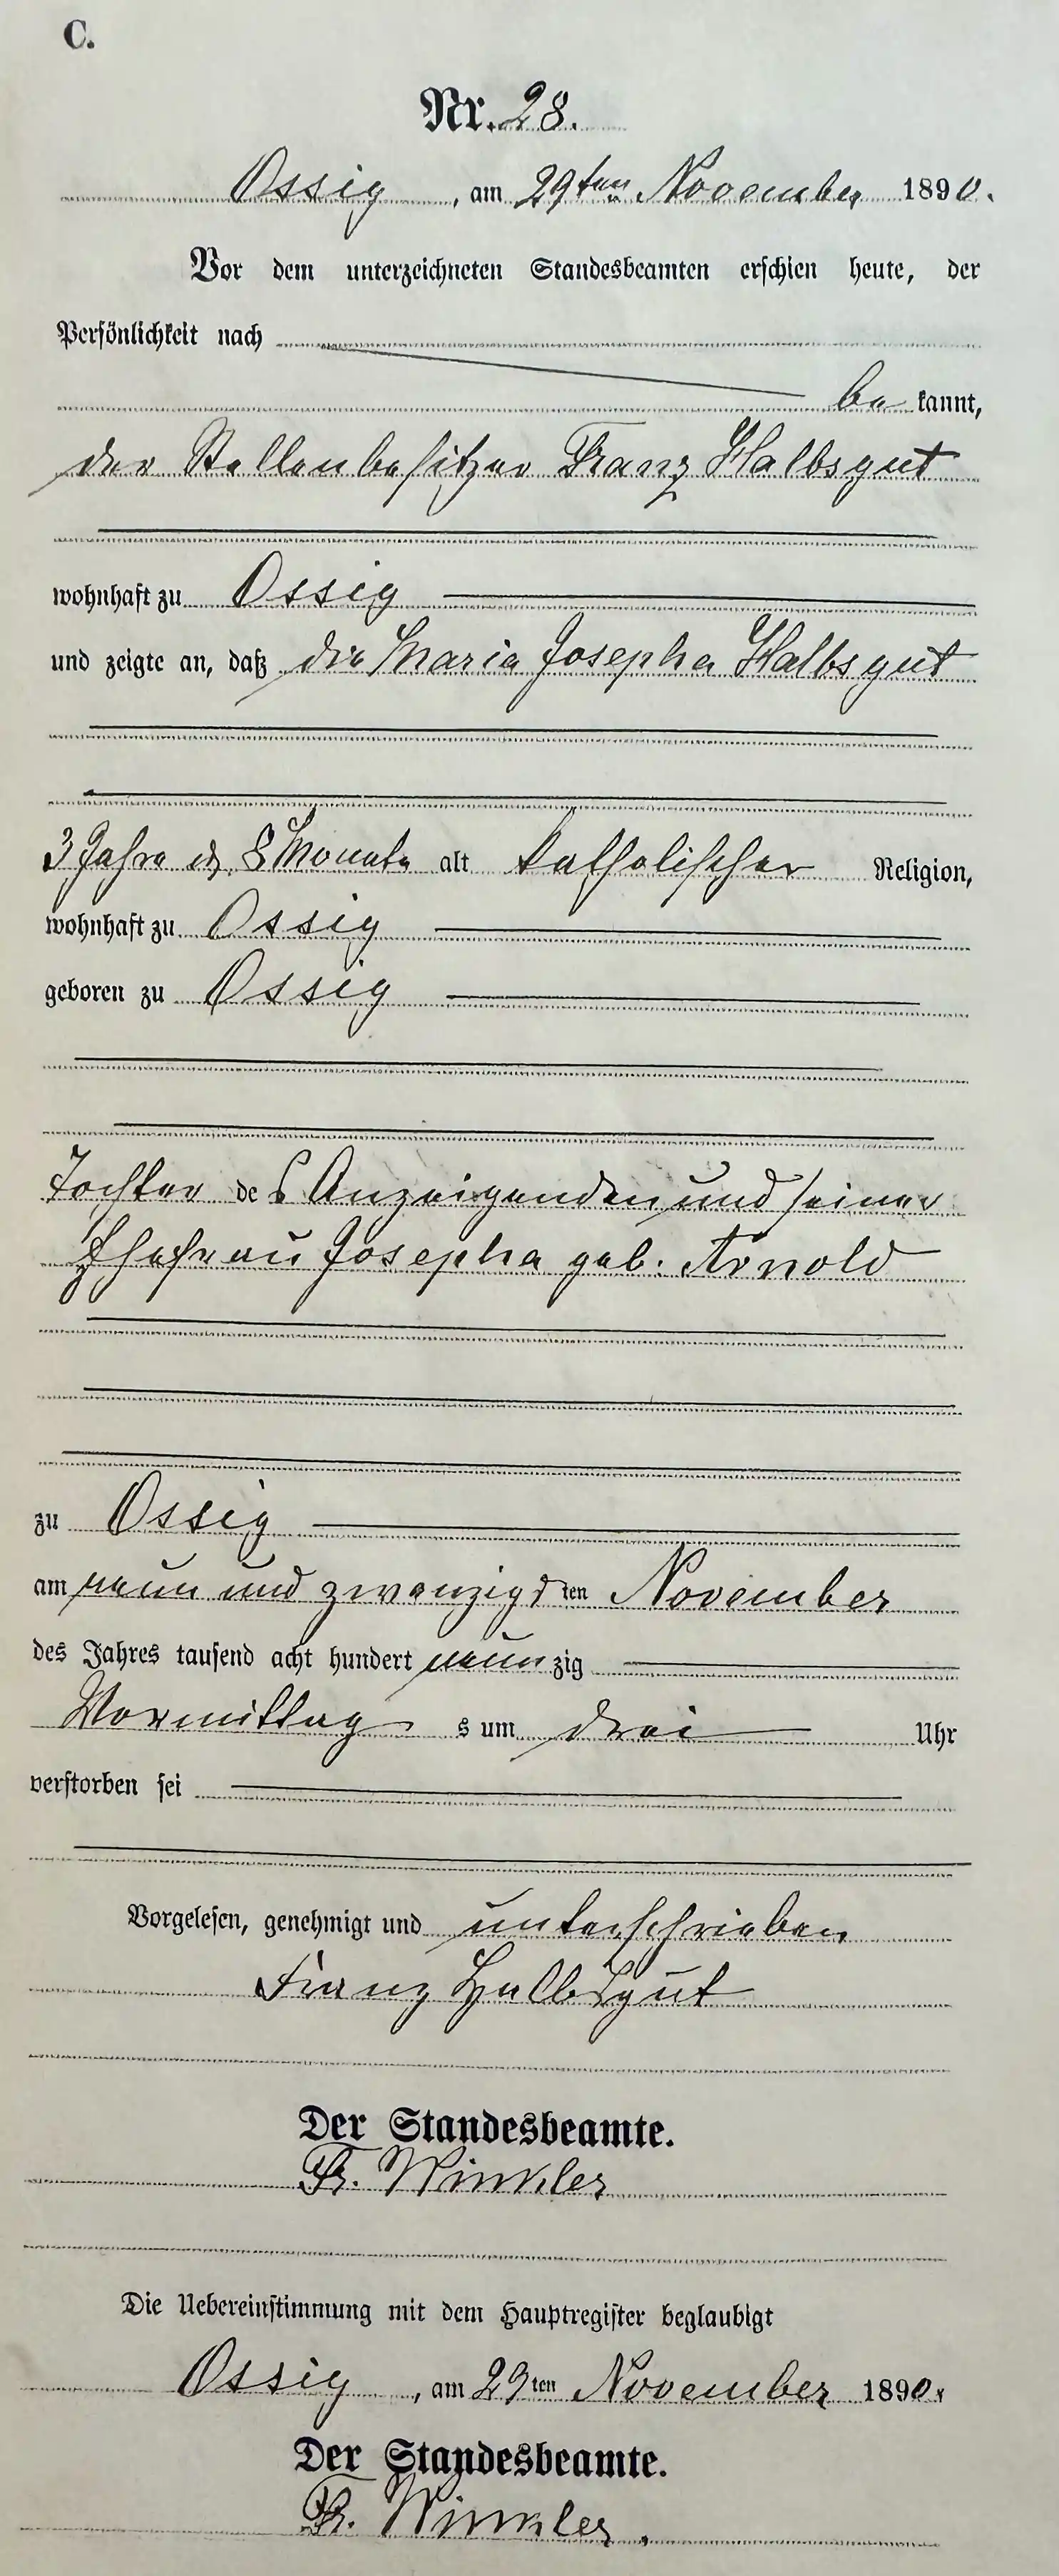 C.
Nr. 28.
Ossig, am 29ten November 1890.
Vor dem unterzeichneten Standesbeamten erschien heute, der
Persönlichkeit nach
bekannt,
der Stellenbesitzer Franz Halbsgut
wohnhaft zu Ossig
und zeigte an, daß die Maria Josepha Halbsgut
3 Jahre u 8 Monate alt katholischer Religion,
wohnhaft zu Ossig
geboren zu Ossig
Tochter des Anzeigenden und seiner
Ehefrau Josepha geb. Arnold
zu Ossig
am neun und zwanzigsten November
des Jahres tausend acht hundert neunzig
Vormittags um drei Uhr
verstorben sei
Vorgelesen, genehmigt und unterschrieben
Franz Halbsgut
Der Standesbeamte.
Fr. Winkler
Die Uebereinstimmung mit dem Hauptregister beglaubigt
Ossig, am 29ten November 1890.
Der Standesbeamte.
Fr. Winkler.